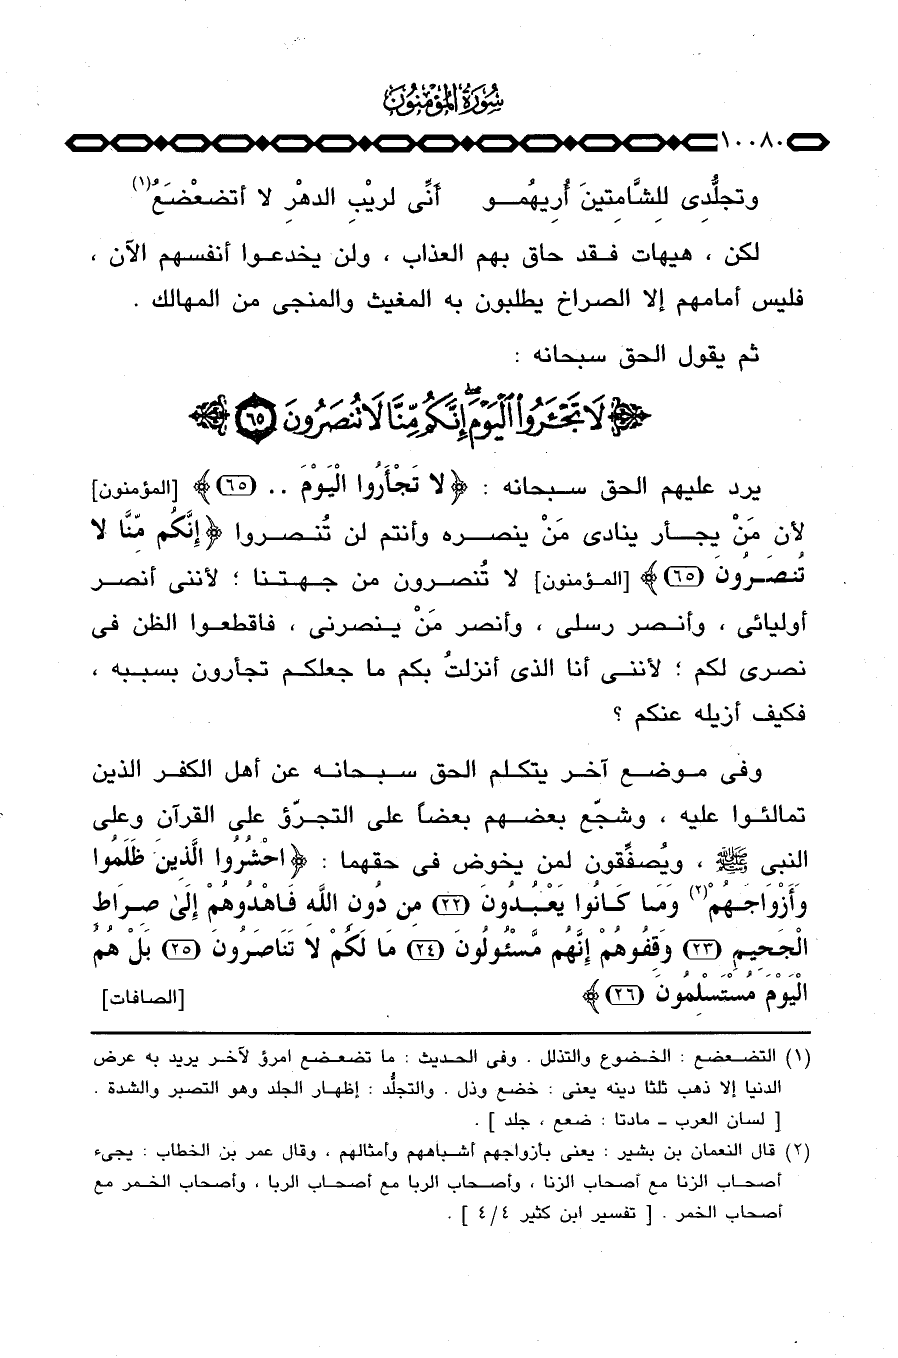 سُورَةُ المُؤْمِنُونَ
١٠٠٨٠
وتجلُّدى للشَّامتينَ أُريهُمــو أَنِّى لريْبِ الدهْرِ لا أتضعْضَعُ(١)
لكن ، هيهات فـقد حاق بهم العذاب ، ولن يخدعـوا أنفسهم الآن ،
فليس أمامهم إلا الصراخ يطلبون به المغيث والمنجى من المهالك .
ثم يقول الحق سبحانه :
﴿ لَا تَجْـَٔرُوا۟ ٱلْيَوْمَ ۖ إِنَّكُم مِّنَّا لَا تُنصَرُونَ ٦٥ ﴾
يرد عليهم الحق سبحانه : ﴿ لا تَجْأَرُوا الْيَوْمَ .. (٦٥) ﴾ [المؤمنون]
لأن مَنْ يجأر ينادى مَنْ ينصره وأنتم لن تُنصروا ﴿ إِنَّكُم مِّنَّا لا
تُنصَرُونَ (٦٥) ﴾ [المؤمنون] لا تُنصرون من جهتنا ؛ لأننى أنصر
أوليائى ، وأنصر رسلى ، وأنصر مَنْ ينصرنى ، فاقطعوا الظن فى
نصرى لكم ؛ لأننى أنا الذى أنزلتُ بكم ما جعلكم تجأرون بسببه ،
فكيف أزيله عنكم ؟
وفى موضع آخر يتكلم الحق سبحانه عن أهل الكفر الذين
تمالئوا عليه ، وشجَّع بعضهم بعضاً على التجرّؤ على القرآن وعلى
النبى ﷺ ، ويُصفِّقون لمن يخوض فى حقهما : ﴿ احْشُرُوا الَّذِينَ ظَلَمُوا
وَأَزْوَاجَهُمْ(٢) وَمَا كَانُوا يَعْبُدُونَ (٢٢) مِن دُونِ اللَّهِ فَاهْدُوهُمْ إِلَىٰ صِرَاطِ
الْجَحِيمِ (٢٣) وَقِفُوهُمْ إِنَّهُم مَّسْئُولُونَ (٢٤) مَا لَكُمْ لا تَنَاصَرُونَ (٢٥) بَلْ هُمُ
الْيَوْمَ مُسْتَسْلِمُونَ (٢٦) ﴾ [الصافات]
(١) التضعضع : الخضوع والتذلل . وفى الحديث : ما تضعضع امرؤ لآخر يريد به عرض
الدنيا إلا ذهب ثلثا دينه يعنى : خضع وذل . والتجلُّد : إظهار الجلد وهو التصبر والشدة .
[ لسان العرب ـ مادتا : ضعع ، جلد ] .
(٢) قال النعمان بن بشير : يعنى بأزواجهم أشباههم وأمثالهم ، وقال عمر بن الخطاب : يجىء
أصحاب الزنا مع أصحاب الزنا ، وأصحاب الربا مع أصحاب الربا ، وأصحاب الخمر مع
أصحاب الخمر . [ تفسير ابن كثير ٤/٤ ] .